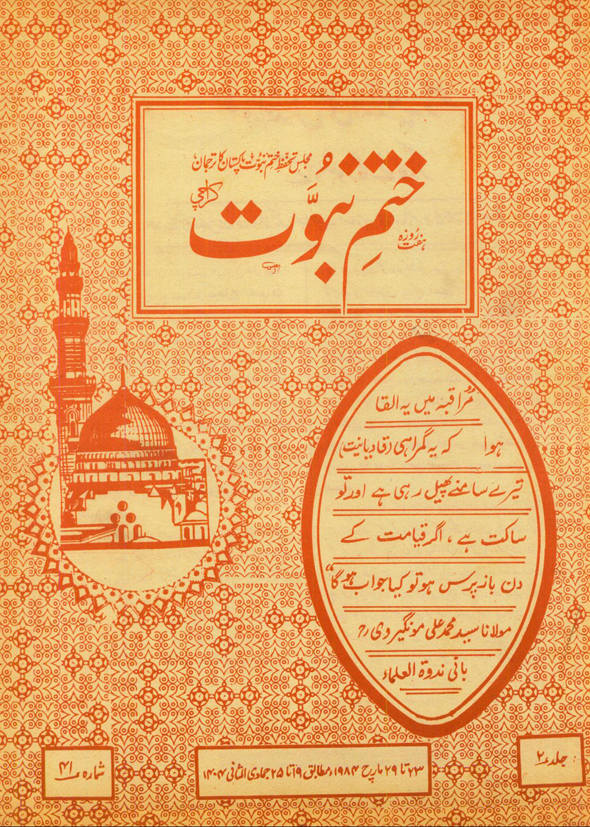 مجلس تحفظ ختم نبوت پاکستان کا ترجمان
ہفت روزہ
ختمِ نبوّت
کراچی
مُراقبہ میں یہ القا
ہوا کہ یہ گمراہی (قادیانیت)
تیرے سامنے پھیل رہی ہے اور تو
ساکت ہے ، اگر قیامت کے
دن باز پرس ہو تو کیا جواب ہوگا“
مولانا سید محمد علی مونگیروی رح
بانی ندوۃ العلماء
جلد ۲
۲۳ تا ۲۹ مارچ ۱۹۸۴ء مطابق ۱۹ تا ۲۵ جمادی الثانی ۱۴۰۴
شمارہ ۴۱